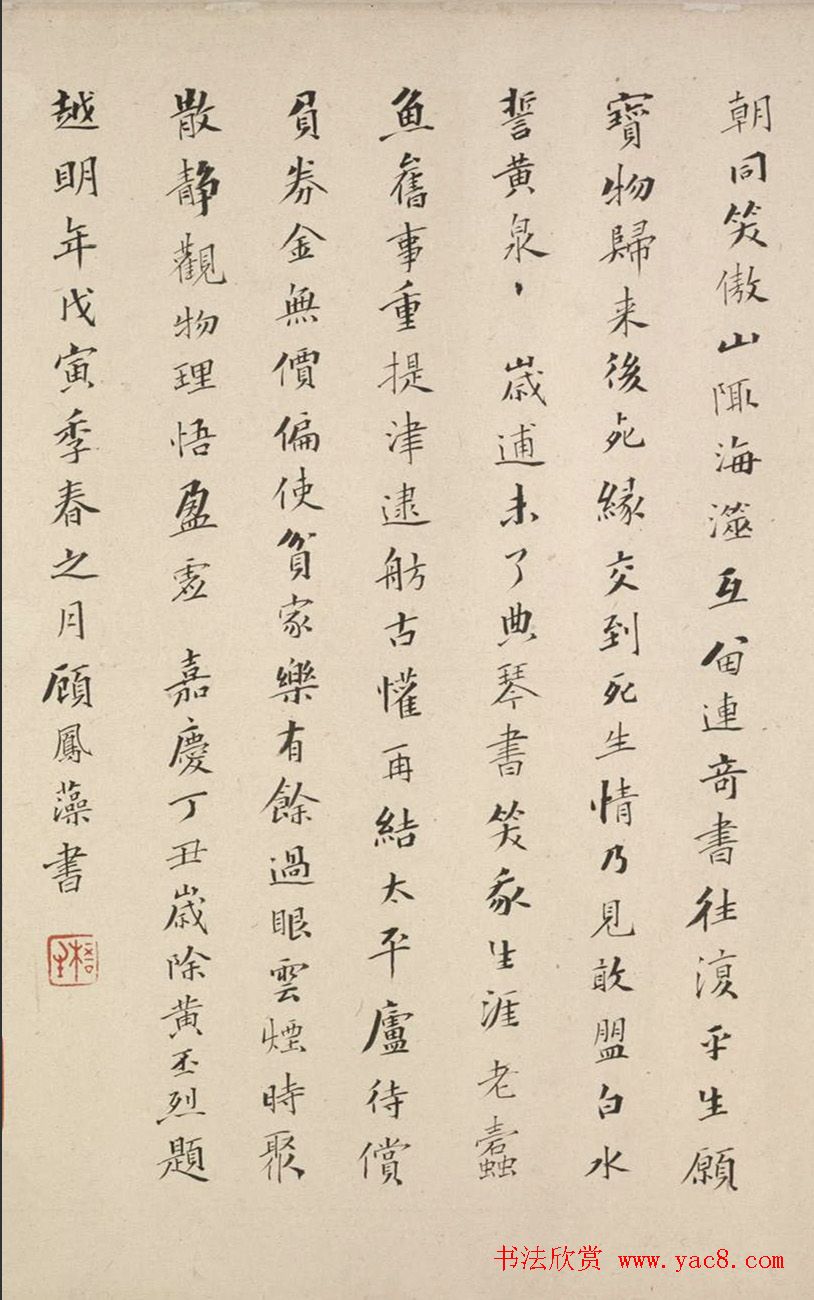 朝同笑傲山陬海澨互留連奇書往復平生願
寶物歸來後死緣交到死生情乃見敢盟白水
誓黃泉丶 歲逋未了典琴書笑我生涯老蠹
魚舊事重提津逮舫古懽再結太平廬待償
負券金無價偏使貧家樂有餘過眼雲煙時聚
散靜觀物理悟盈虛 嘉慶丁丑歲除黃丕烈題
越明年戊寅季春之月顧鳳藻書
梧生
书法欣赏 www.yac8.com